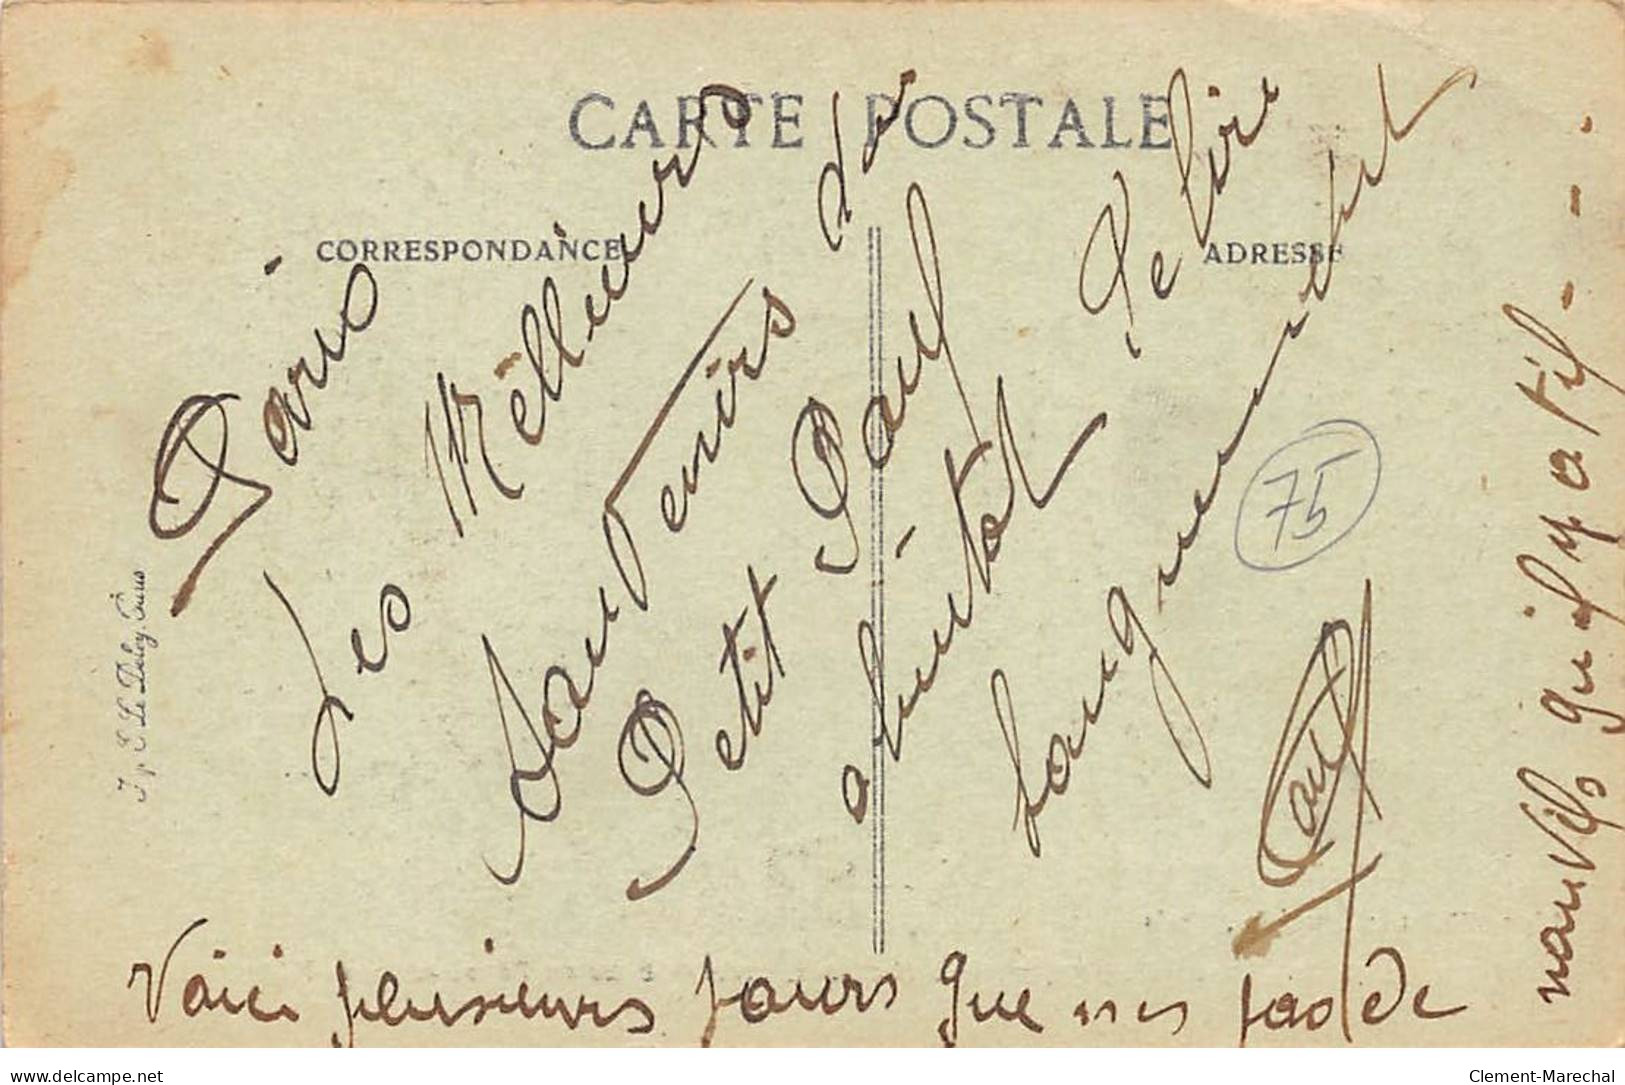 CARTE POSTALE
CORRESPONDANCE
ADRESSE
Paris
Les Mèlleurs
Souvenirs du
Petit Paul
a biutot de lire
longuement
Paul
Voici plusieurs jours que pas de
nouvels qu'il y atil - - -
75
E. Le Deley, Paris
Clement-Marechal
www.delcampe.net